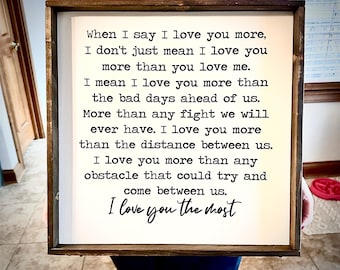 When I say I love you more,
I don't just mean I love you
more than you love me.
I mean I love you more than
the bad days ahead of us.
More than any fight we will
ever have. I love you more
than the distance between us.
I love you more than any
obstacle that could try and
come between us.
I love you the most